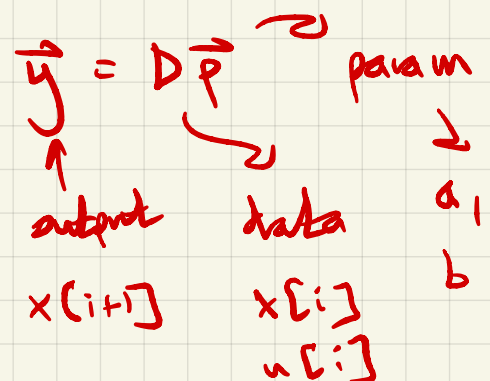 y⃗ = D p⃗
param
output
data
a,
b
x[i+1]
x[i]
u[i]